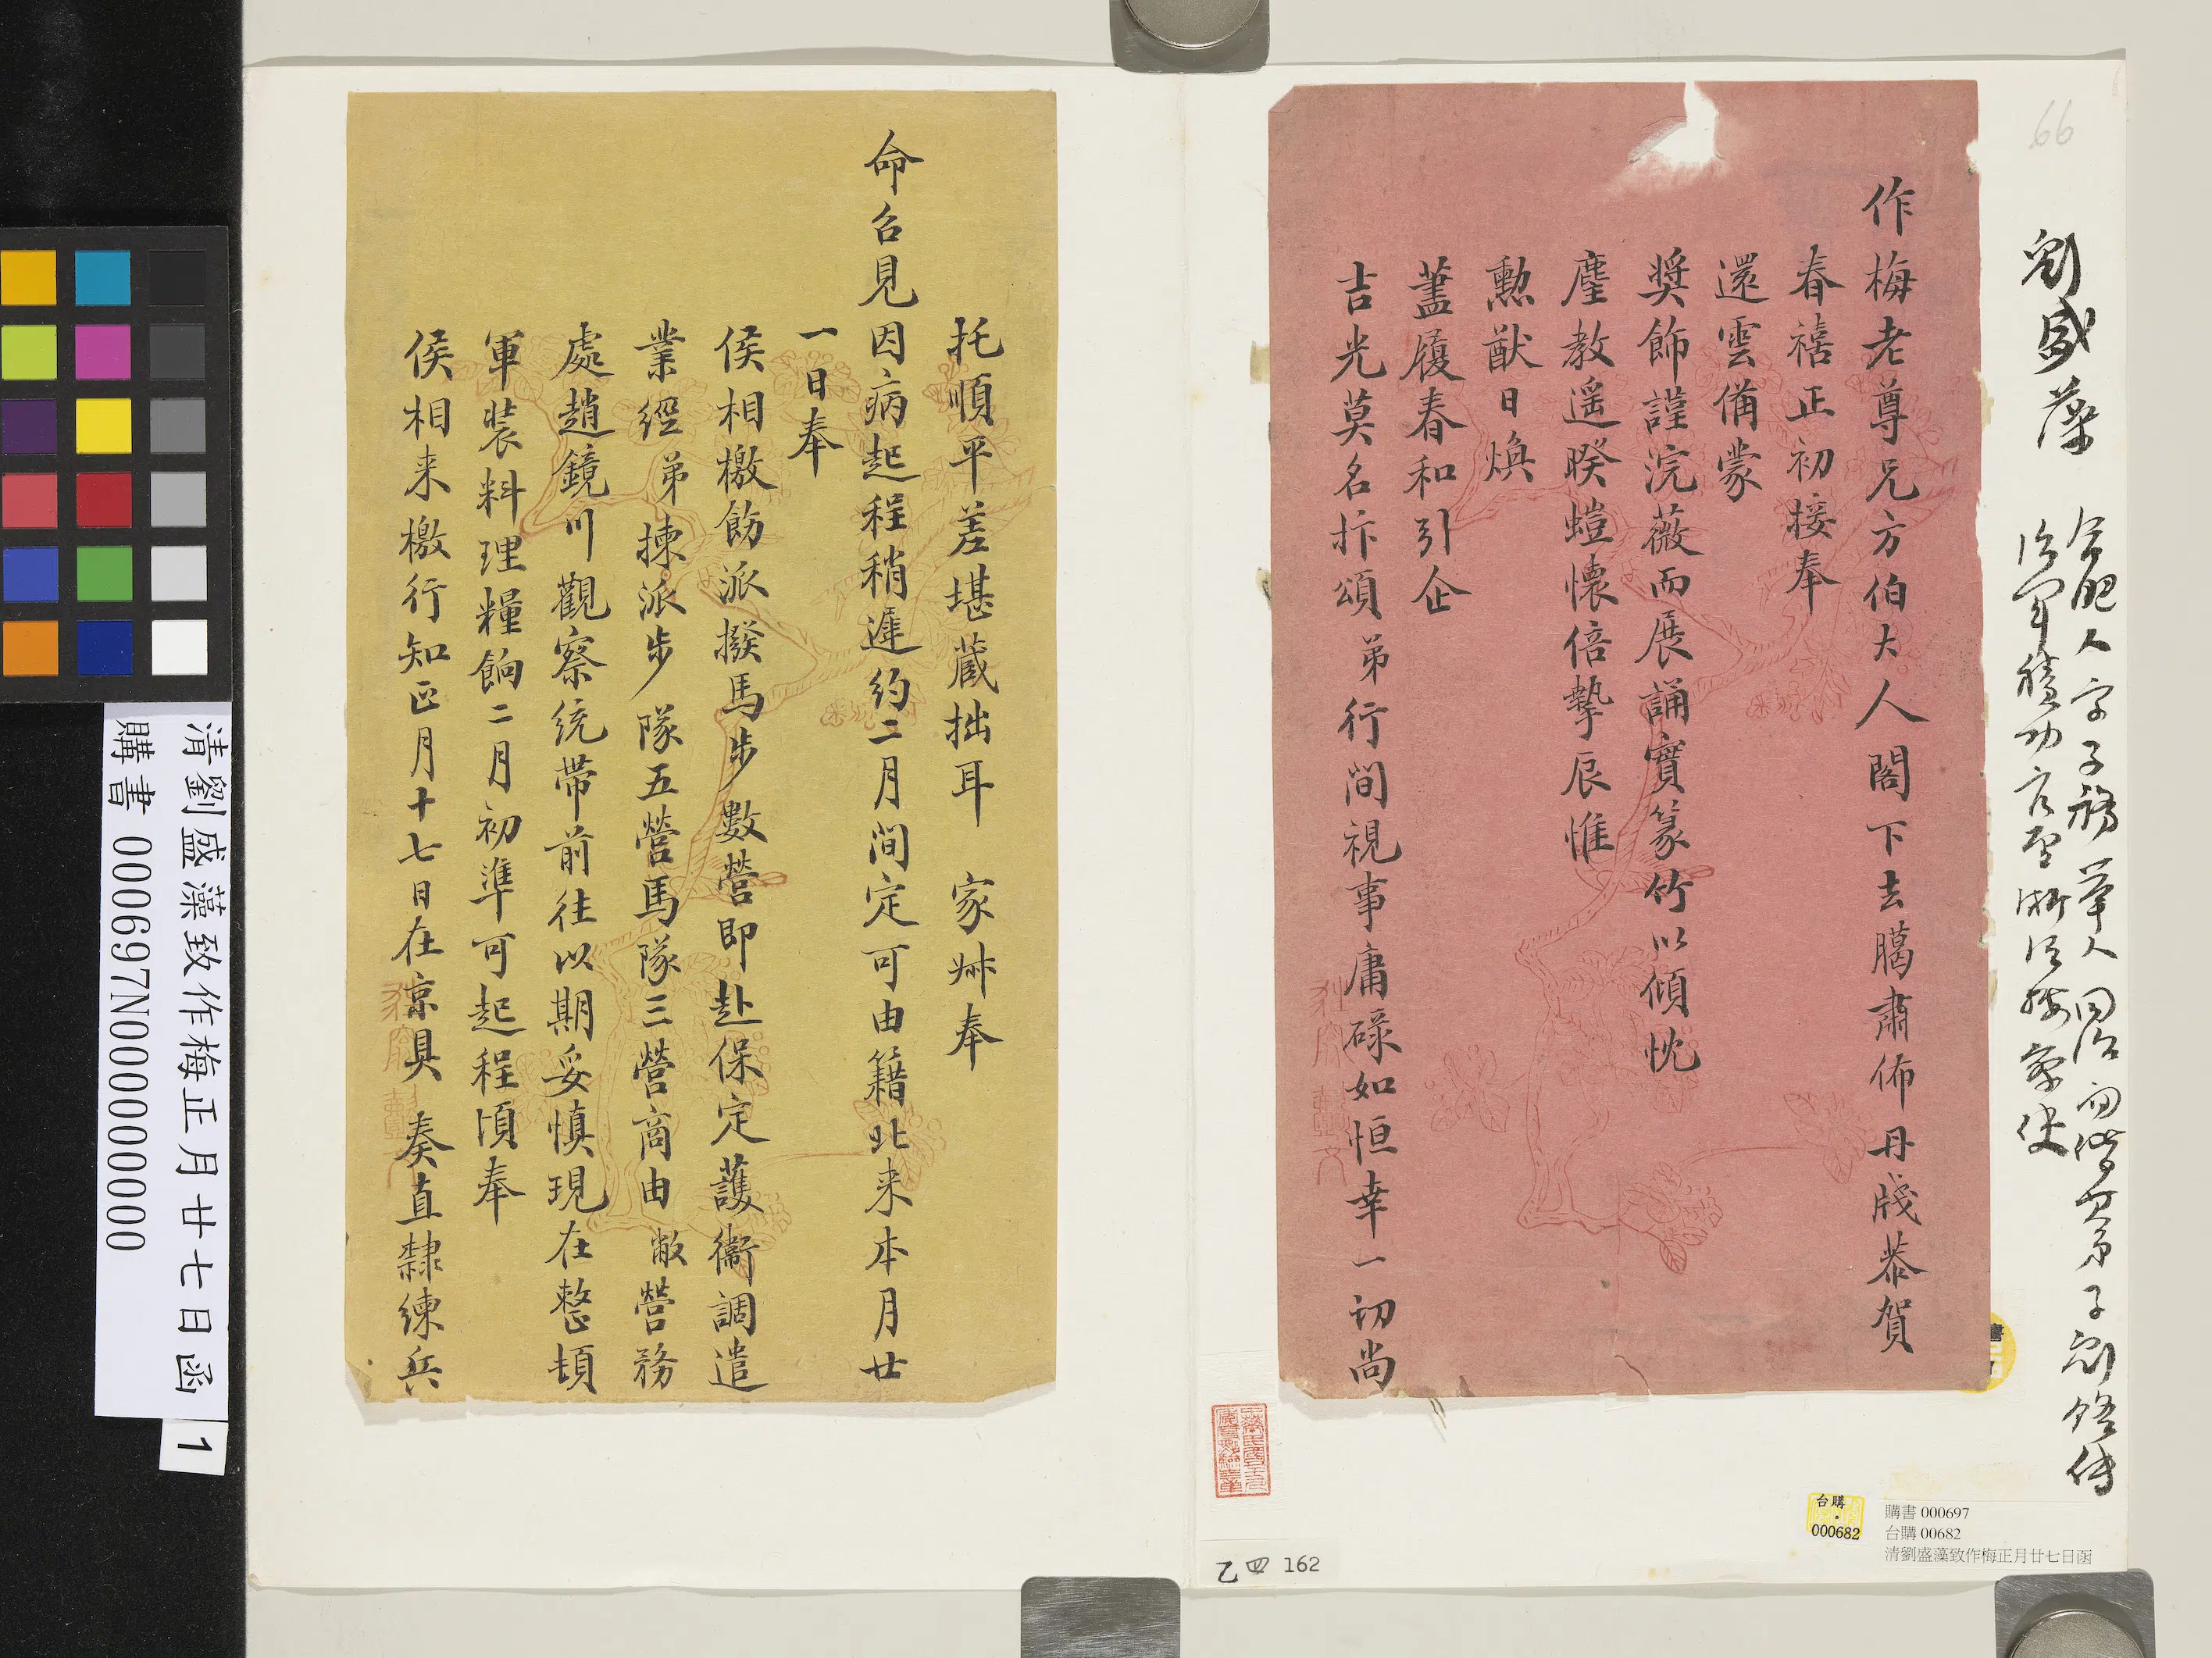 66
劉盛藻
合肥人字子務舉人同治
治軍積功官至浙江按察使
作梅老尊兄方伯大人閣下去臘肅佈丹牋恭賀
春禧正初接奉
還雲備蒙
獎飾謹浣薇而展誦實篆竹以傾忱
塵教遥睽螘懷倍摯辰惟
勲猷日煥
藎履春和引企
吉光莫名抃頌弟行間視事庸碌如恒幸一切尚
托順平差堪藏拙耳 家叔奉
命召見因病起程稍遲約二月間定可由籍北来本月廿
一日奉
侯相檄飭派撥馬步數營即赴保定護衞調遣
業經弟揀派步隊五營馬隊三營商由敝營務
處趙鏡川觀察統带前往以期妥慎現在整頓
軍裝料理糧餉二月初準可起程頃奉
侯相来檄行知正月十七日在京具奏直隸練兵
清劉盛藻致作梅正月廿七日函
購書 000697N000000000
1
台購
000682
購書 000697
台購 00682
清劉盛藻致作梅正月廿七日函
乙四 162